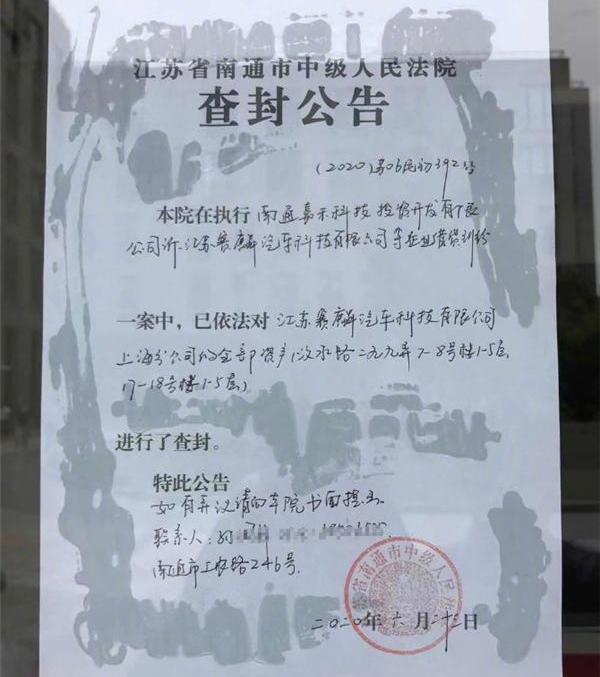 江苏省南通市中级人民法院
查封公告
(2020)苏06民初392号
本院在执行 南通嘉禾科技投资开发有限
公司诉江苏赛麟汽车科技有限公司等企业借贷纠纷
一案中,已依法对 江苏赛麟汽车科技有限公司
上海分公司的全部资产(汶水路二九九弄7-8号楼1-5层
17-18号楼1-5层)
进行了查封。
特此公告
如有异议请向本院书面提出
联系人:
南通市工农路246号
二〇二〇年六月二十三日
省南通市中级人民